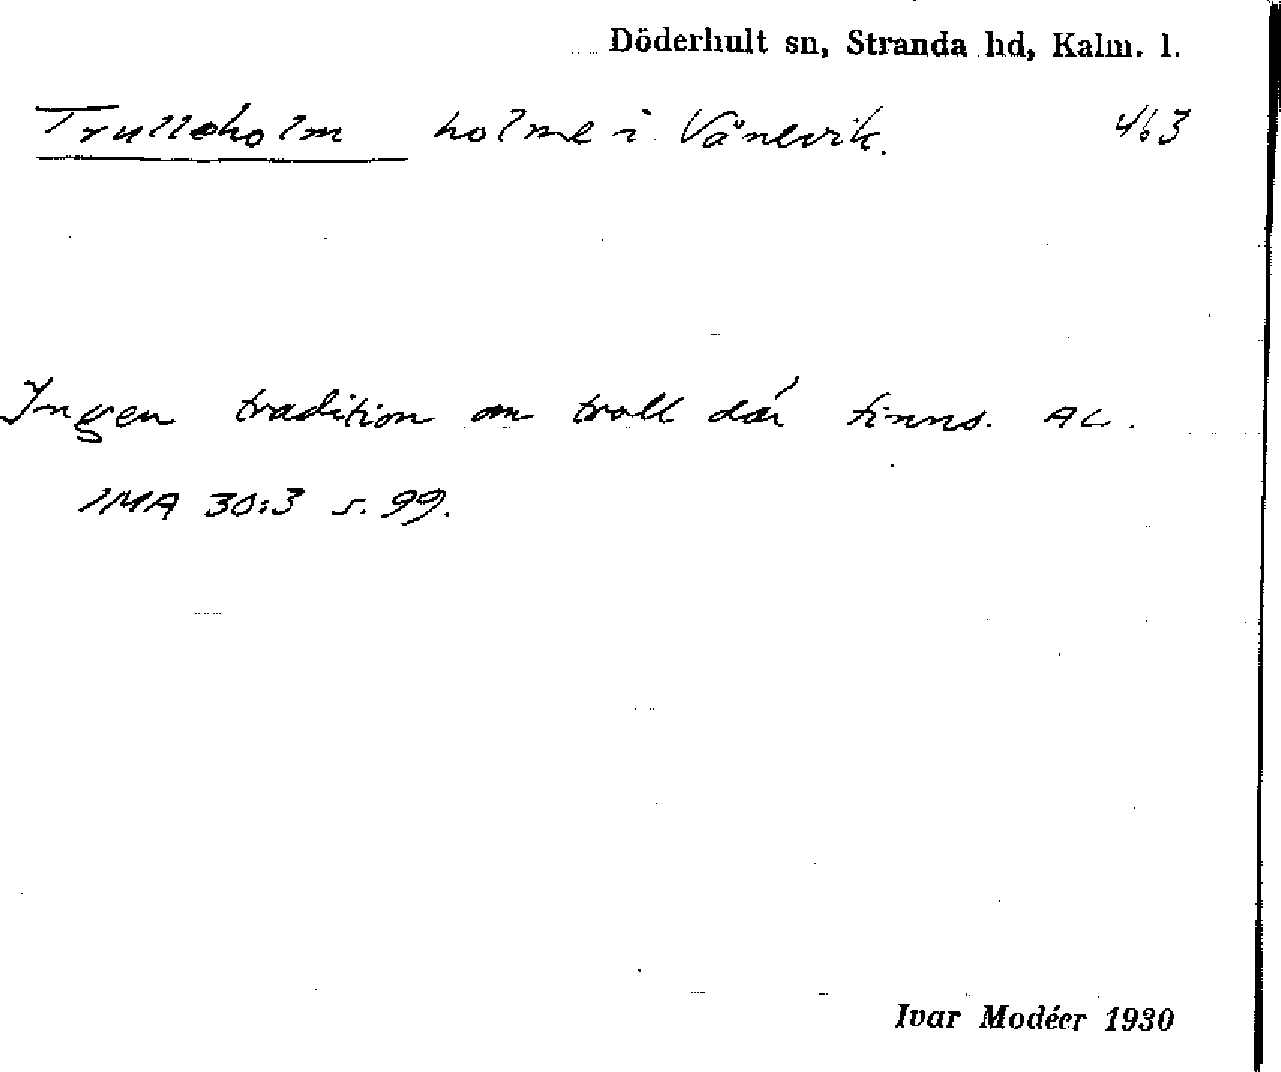 Döderhult sn, Stranda hd, Kalm. l.
Trulleholm holme i Vånevik. 463
Ingen tradition om troll där finns. AL.
IMA 30:3 s. 99.
Ivar Modéer 1930